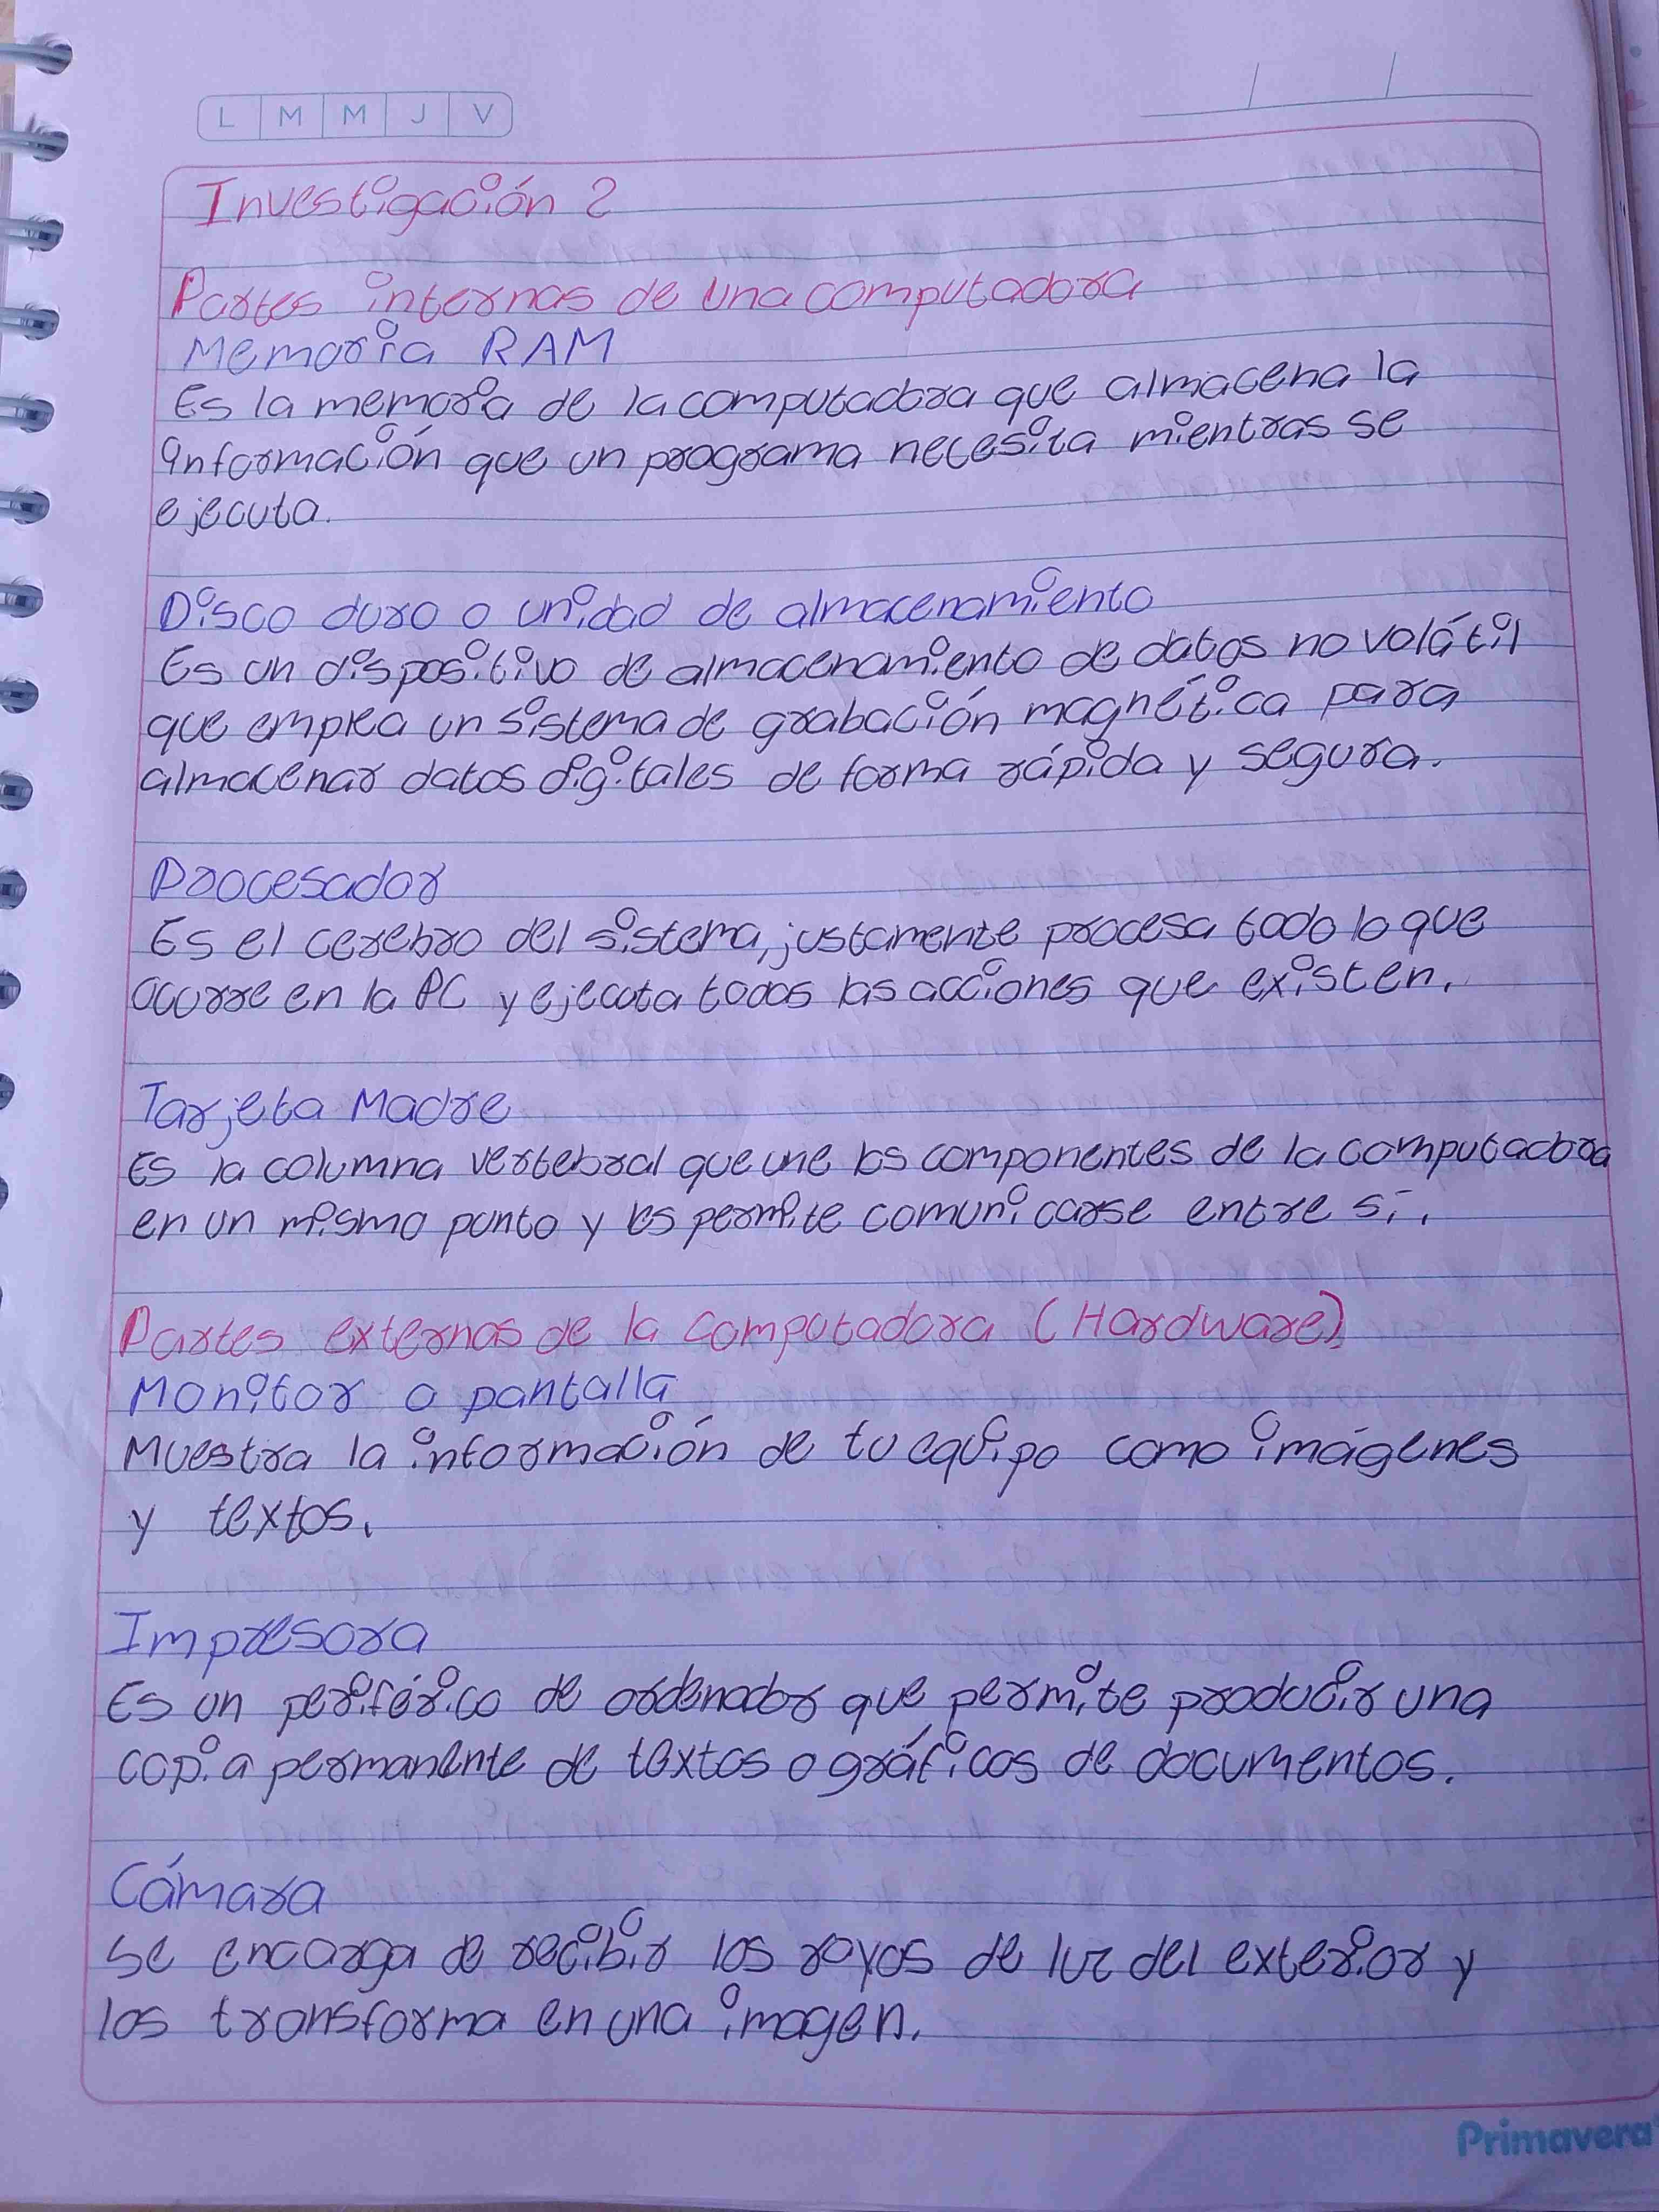 L M M J V
Investigación 2
Partes internas de una computadora
Memoria RAM
Es la memoria de la computadora que almacena la
información que un programa necesita mientras se
ejecuta.
Disco duro o unidad de almacenamiento
Es un dispositivo de almacenamiento de datos no volátil
que emplea un sistema de grabación magnética para
almacenar datos digitales de forma rápida y segura.
Procesador
Es el cerebro del sistema, justamente procesa todo lo que
ocurre en la PC y ejecuta todas las acciones que existen.
Tarjeta Madre
Es la columna vertebral que une los componentes de la computadora
en un mismo punto y les permite comunicarse entre sí.
Partes externas de la computadora (Hardware)
Monitor o pantalla
Muestra la información de tu equipo como imágenes
y textos.
Impresora
Es un periférico de ordenador que permite producir una
copia permanente de textos o gráficos de documentos.
Cámara
Se encarga de recibir los rayos de luz del exterior y
los transforma en una imagen.
Primavera